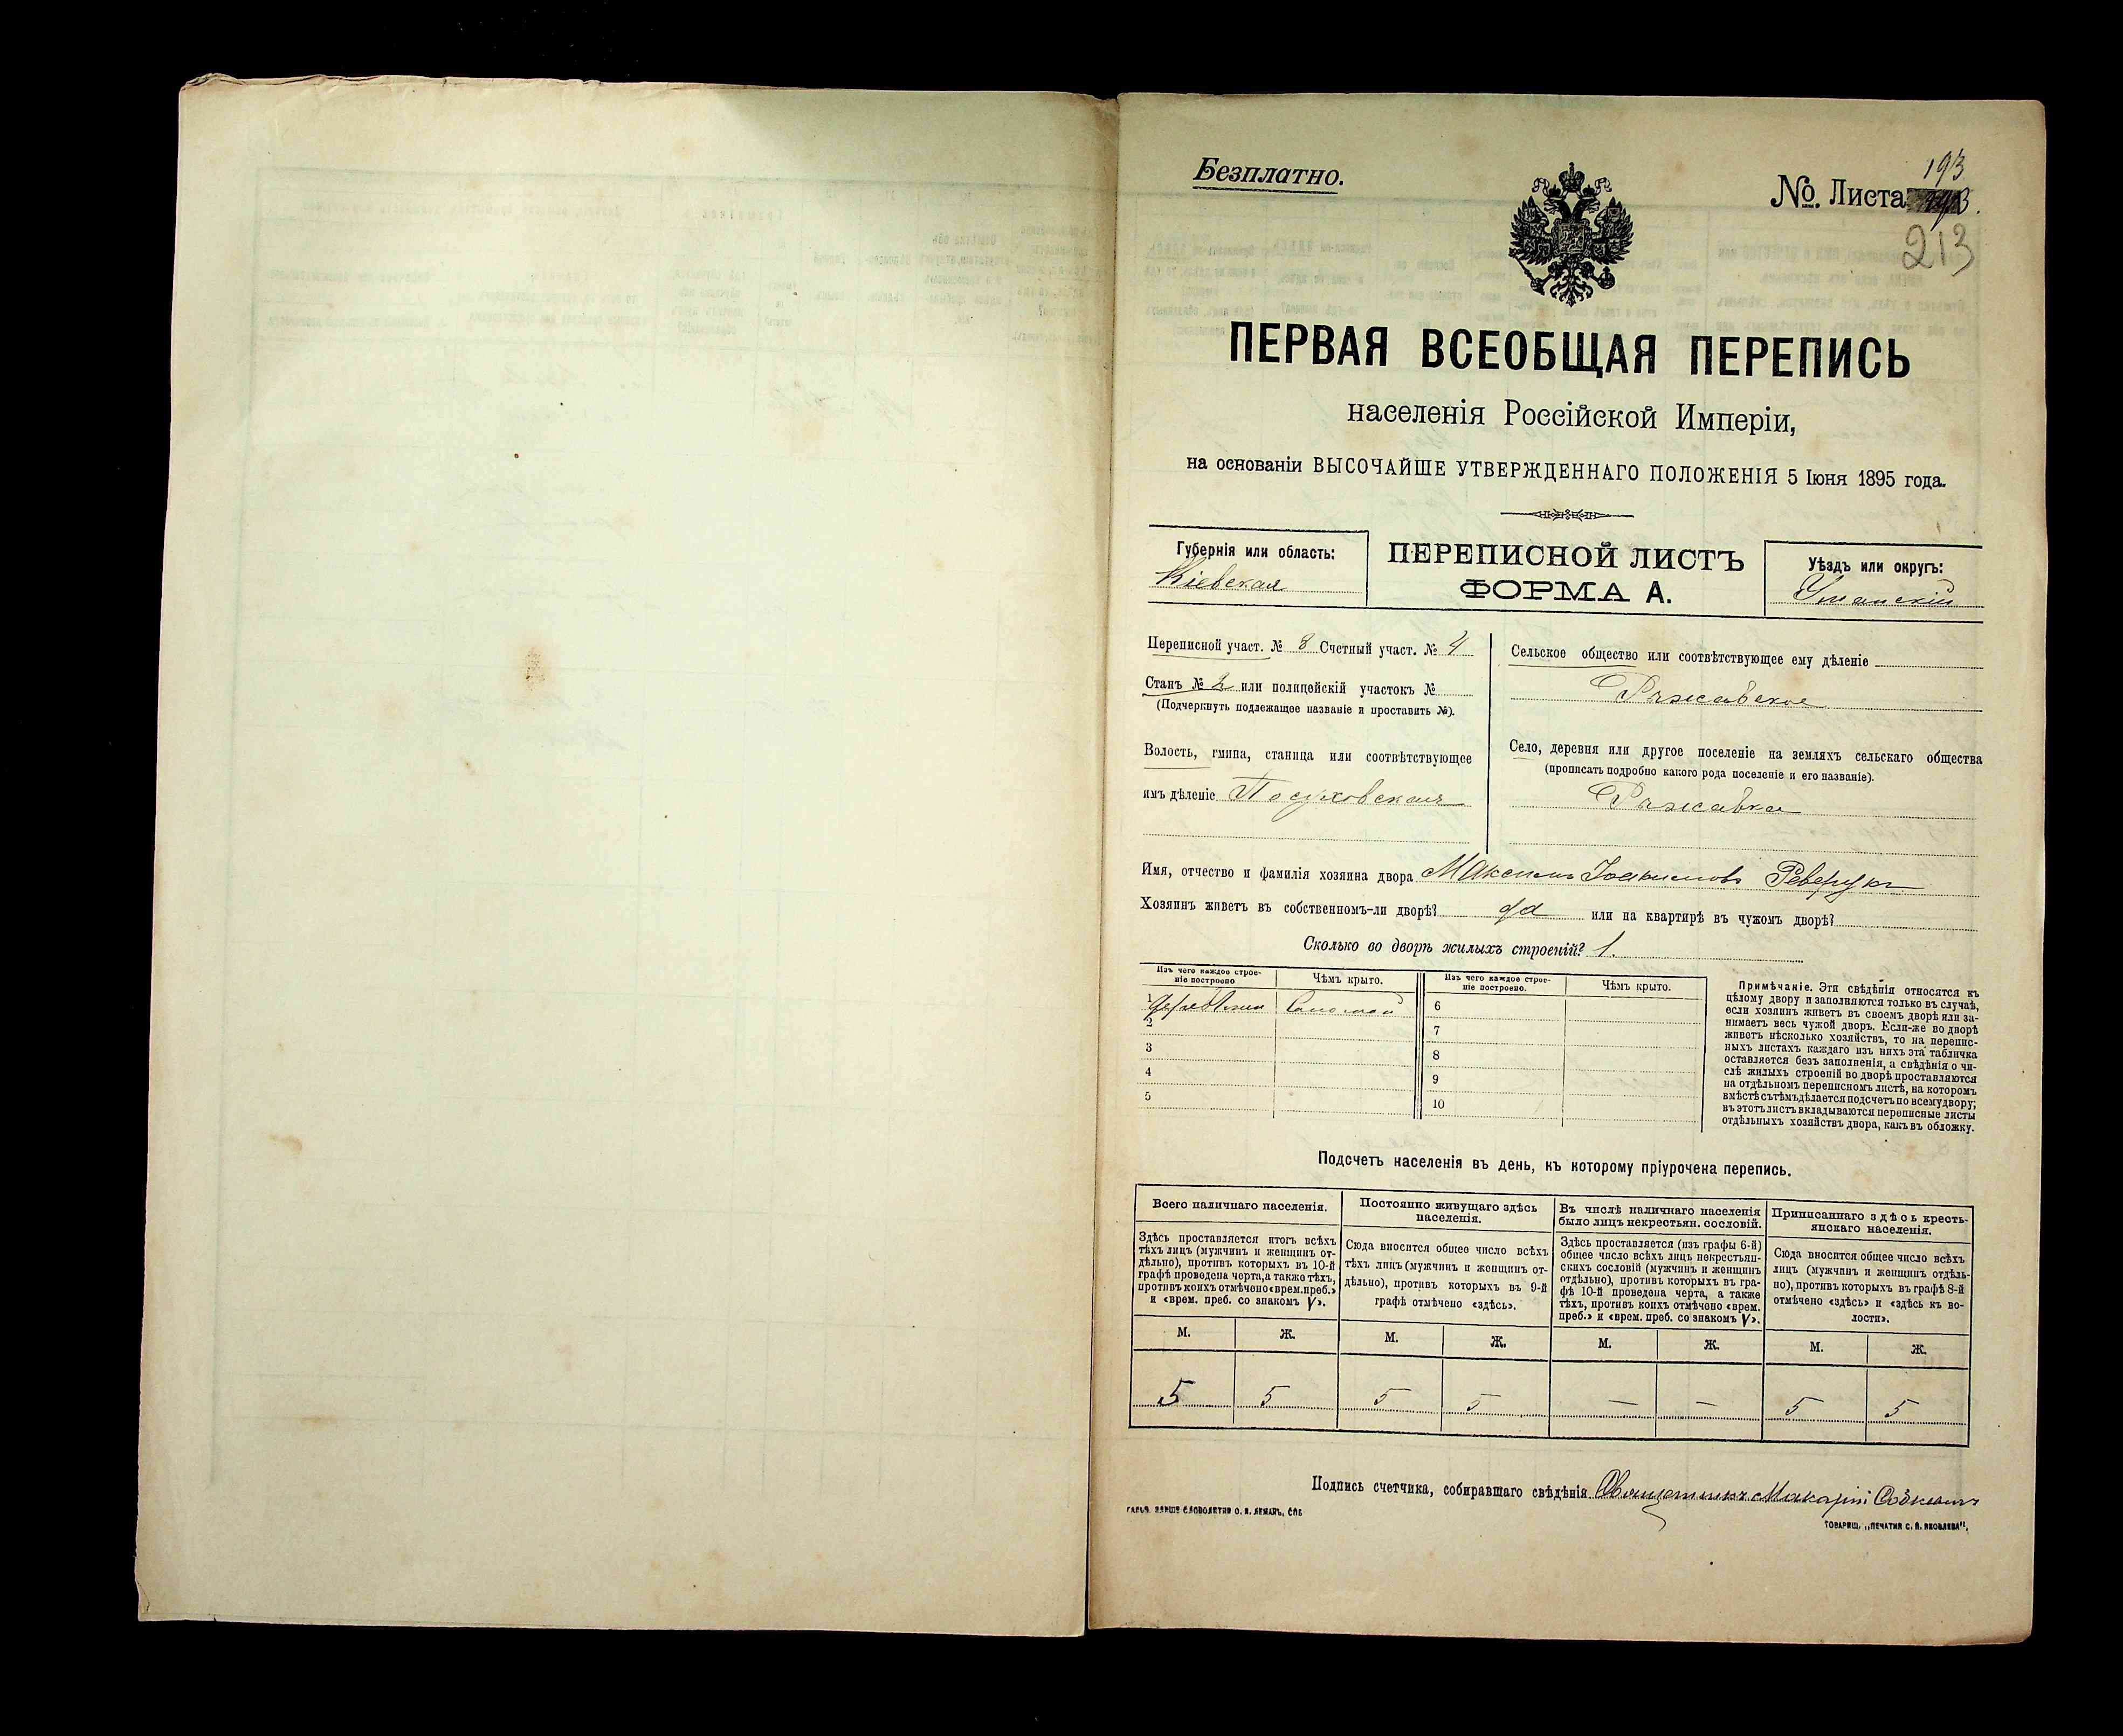 Безплатно.
№ Листа
193
213
ПЕРВАЯ ВСЕОБЩАЯ ПЕРЕПИСЬ
населенія Россійской Имперіи,
на основаніи ВЫСОЧАЙШЕ УТВЕРЖДЕННАГО ПОЛОЖЕНІЯ 5 Іюня 1895 года.
Губернія или область:
Кіевская
ПЕРЕПИСНОЙ ЛИСТЪ
ФОРМА А.
Уѣздъ или округъ:
Уманскій
Переписной участ. № 8 Счетный участ. № 4
Станъ № 2 или полицейскій участокъ №
(Подчеркнуть подлежащее названіе и проставить №).
Волость, гмина, станица или соотвѣтствующее
имъ дѣленіе Посуховская
Сельское общество или соотвѣтствующее ему дѣленіе
Ряжавское
Село, деревня или другое поселеніе на земляхъ сельскаго общества
(прописать подробно какого рода поселеніе и его названіе).
Ряжавка
Имя, отчество и фамилія хозяина двора Максимъ Іоакимовъ Реверукъ
Хозяинъ живетъ въ собственномъ-ли дворѣ? да или на квартирѣ въ чужомъ дворѣ?
Сколько во дворѣ жилыхъ строеній? 1.
Изъ чего каждое строе-
ніе построено
Чѣмъ крыто.
Изъ чего каждое строе-
ніе построено.
Чѣмъ крыто.
1 Соломой
2
3
4
5
6
7
8
9
10
Примѣчаніе. Эти свѣдѣнія относятся къ
цѣлому двору и заполняются только въ случаѣ,
если хозяинъ живетъ въ своемъ дворѣ или за-
нимаетъ весь чужой дворъ. Если-же во дворѣ
живетъ нѣсколько хозяйствъ, то на перепис-
ныхъ листахъ каждаго изъ нихъ эта табличка
оставляется безъ заполненія, а свѣдѣнія о чи-
слѣ жилыхъ строеній во дворѣ проставляются
на отдѣльномъ переписномъ листѣ, на которомъ
вмѣстѣ съ тѣмъ дѣлается подсчетъ по всему двору;
въ этотъ листъ вкладываются переписные листы
отдѣльныхъ хозяйствъ двора, какъ въ обложку.
Подсчетъ населенія въ день, къ которому пріурочена перепись.
Всего наличнаго населенія.
Здѣсь проставляется итогъ всѣхъ
тѣхъ лицъ (мужчинъ и женщинъ от-
дѣльно), противъ которыхъ въ 10-й
графѣ проведена черта, а также тѣхъ,
противъ коихъ отмѣчено «врем. преб.»
и «врем. преб. со знакомъ V».
Постоянно живущаго здѣсь
населенія.
Сюда вносится общее число всѣхъ
тѣхъ лицъ (мужчинъ и женщинъ от-
дѣльно), противъ которыхъ въ 9-й
графѣ отмѣчено «здѣсь».
Въ числѣ наличнаго населенія
было лицъ некрестьян. сословій.
Здѣсь проставляется (изъ графы 6-й)
общее число всѣхъ лицъ некрестьян-
скихъ сословій (мужчинъ и женщинъ
отдѣльно), противъ которыхъ въ гра-
фѣ 10-й проведена черта, а также
тѣхъ, противъ коихъ отмѣчено «врем.
преб.» и «врем. преб. со знакомъ V».
Приписаннаго здѣсь кресть-
янскаго населенія.
Сюда вносится общее число всѣхъ
лицъ (мужчинъ и женщинъ отдѣль-
но), противъ которыхъ въ графѣ 8-й
отмѣчено «здѣсь» и «здѣсь къ во-
лости».
М. Ж. М. Ж. М. Ж. М. Ж.
5 5 5 5 — — 5 5
Подпись счетчика, собиравшаго свѣдѣнія Священникъ Макарій
СЛОВОЛИТНИ О. И. ЛЕМАНЪ, СПБ
ТОВАРИЩ. „ПЕЧАТНЯ С. П. ЯКОВЛЕВА".